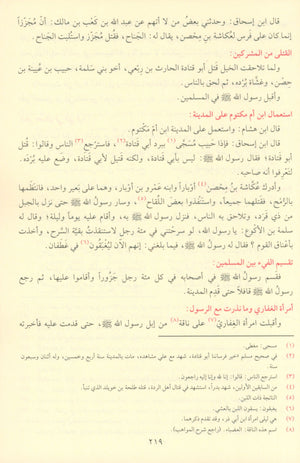 قال ابن إسحاق: وحدثني بعض من لا أتهم عن عبد الله بن كعب بن مالك: أنّ مُجَزّزاً
إنما كان على فرس لعُكاشة بن مِحْصن، يقال له: الجَناح، فقُتل مُجَزّز واستُلبت الجَناح.
القتلى من المشركين:
ولما تلاحقت الخيل قَتل أبو قتادة الحارث بن رِبْعي، أخو بني سَلمة، حبيب بن عُيينة بن
حِصْن، وغشَّاه بُرْده، ثم لحق بالناس.
وأقبل رسول الله ﷺ في المسلمين.
استعمال ابن أم مكتوم على المدينة:
قال ابن هشام: واستعمل على المدينة ابن أمّ مَكْتوم.
قال ابن إسحاق: فإذا حبيب مُسَجًّى (١) ببرد أبي قتادة (٢)، فاسترْجع (٣) الناس وقالوا: قُتل
أبو قتادة! فقال رسول الله ﷺ: ليس بأبي قتادة، ولكنه قتيل لأبي قتادة، وضع عليه بُرْده،
لتعرفوا أنه صاحبه.
وأدرك عُكَّاشة بنُ مِحْصن (٤) أوْباراً وابنه عَمْرو بن أوْبار، وهما على بعير واحد، فانتَظَمَهما
بالرُّمح، فقتلهما جميعاً، واستنْقذوا بعضَ اللِّقاح (٥)، وسار رسولُ الله ﷺ حتى نزل بالجبل
من ذي قَرَد، وتلاحق به الناس، فنزل رسول الله ﷺ به، وأقام عليه يوماً وليلة؛ وقال له
سَلمة بن الأكْوع: يا رسول الله، لو سرّحْتني في مئة رجل لاستنقذتُ بقيَّة السَّرح، وأخذت
بأعناق القوم؟ فقال له رسول الله ﷺ، فيما بلغني: إنهم الآن ليُغْبَقُون (٦) في غَطَفان.
تقسيم الفيء بين المسلمين:
فقسم رسولُ الله ﷺ في أصحابه في كل مئة رجل جَزُوراً وأقاموا عليها، ثم رجع
رسول الله ﷺ قافلاً حتى قدم المدينة.
امرأة الغفاري وما نذرت مع الرسول:
وأقبلت امرأة الغِفاريّ (٧) على ناقة (٨) من إبل رسول الله ﷺ، حتى قدمت عليه فأخبرته
(١) مسجى: مغطى.
(٢) في صحيح مسلم
(٣) استرجع الناس: قالوا: إنا لله وإنا إليه راجعون.
(٤) من السابقين الأولين، شهد بدراً، استشهد في قتال أهل الردة، قتله طلحة بن خويلد الذي تنبأ.
(٦) يغبقون: يسقون اللبن بالعشي.
(٧) هي ليلى امرأة ابن أبي ذر، وقد تقدم ذكرهما.
(٨) اسم هذه الناقة: العضباء (راجع شرح المواهب).
٢١٩